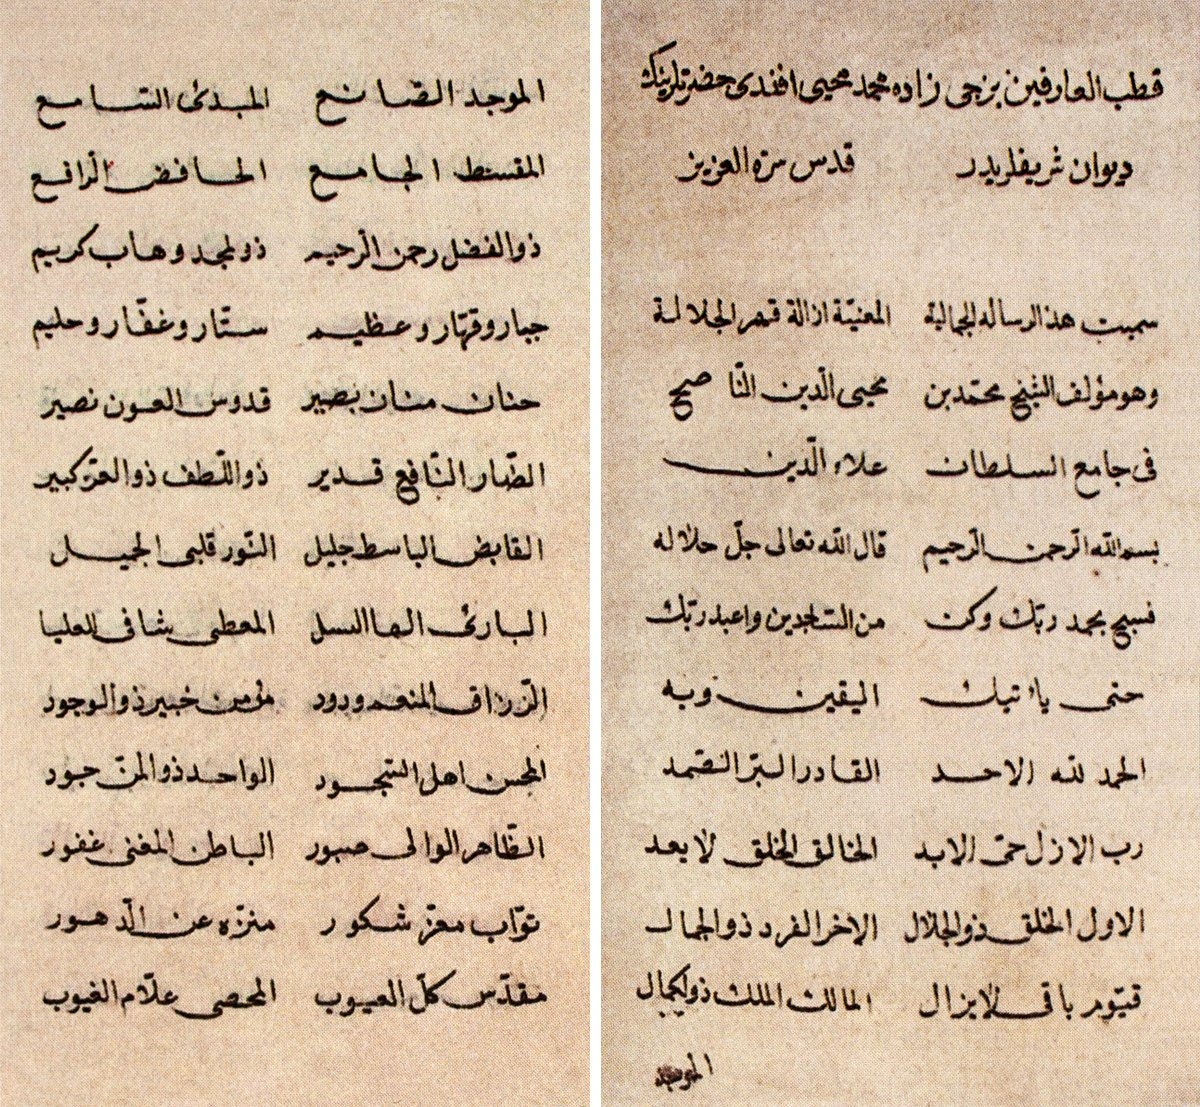 قطب العارفين بزجى زاده محمد محيى افندى حضرتلرينك
ديوان شريفلريدر قدس سره العزيز
سميت هذا الرساله الجمالية المعنيّة ازالة قهر الجلالة
وهو مؤلف الشيخ محمّد بن محيى الّدين النّاصح
فى جامع السلطان علاء الّدين
بسم اللّه الّرحمن الّرحيم قال اللّه تعالى جلّ جلاله
فسبح بحمد ربّك وكن من السّاجدين واعبد ربّك
حتى يأتيك اليقين وبه
الحمد للّه الاحد القادر البّر الصّمد
رب الازل حىّ الابد الخالق الخلق لا يعد
الاول الخلق ذو الجلال الاخر الفرد ذو الجمال
قيّوم باقى لا يزال المالك الملك ذو الكمال
الموجد
الموجد الصّانع المبدئ السّامع
المقسط الجامع الخافض الّرافع
ذو الفضل رحمن الّرحيم ذو لمجد وهاب كريم
جبار وقهّار وعظيم ستّار وغفّار وحليم
حنان منان بصير قدوس العون نصير
الضّار النّافع قدير ذو اللّطف ذو العزّ كبير
القابض الباسط جليل النّور قلبى الجميل
البارئ المعطى شافى العليا
الّرزاق المنعم ودود مؤمن خبير ذو الوجود
المحسن اهل السّجود الواحد ذو المنّ جود
الظّاهر الوالى صبور الباطن المغنى غفور
توّاب معزّ شكور منزّه عن الّدهور
مقدّس كلّ العيوب المحصى علّام الغيوب